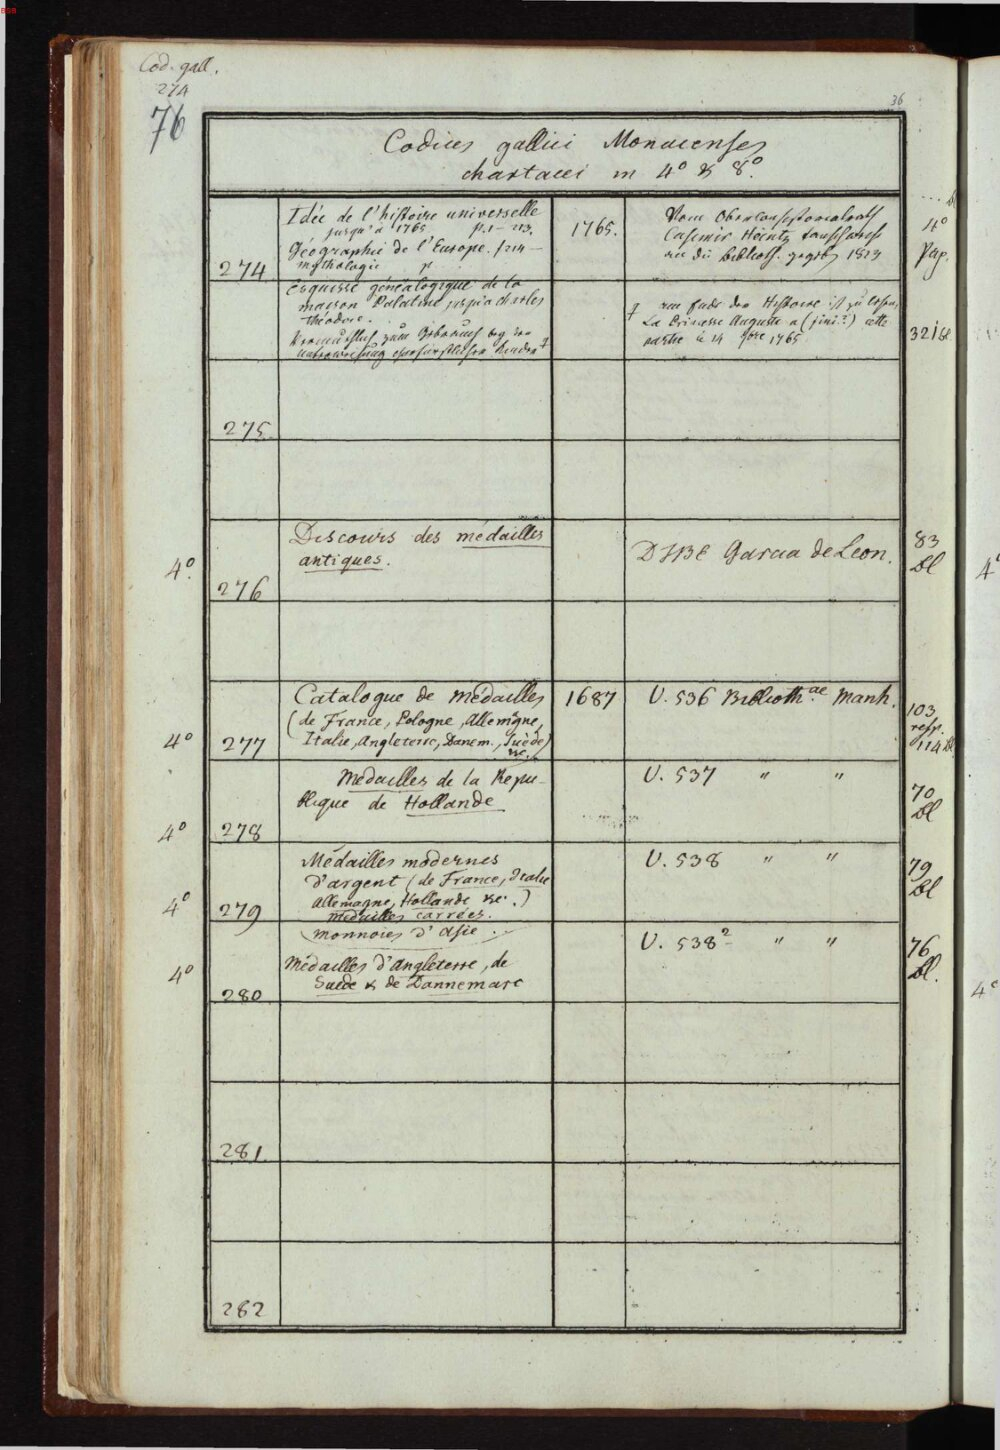 BSB
Cod. gall.
274
76
36
Codices gallici Monacenses
chartacei in 4° & 8°.
Idée de l'histoire universelle
jusqu'à 1765 p. 1 - 213.
1765.
Géographie de l'Europe. /214 -
Casimir
biblioth. 1823
4°
Pap.
274
mythologie
Esquisse généalogique de la
maison Palatine jusqu'à charles
théodore.
zum Gebrauch
La Princesse Auguste a (fini?) cette
partie à 14 1765
321 Bl
275.
Discours des médailles
antiques.
4°.
276
DJBE Garcia de Leon.
83
Bl
Catalogue de Médailles
(de France, Pologne, Allemagne,
Italie, Angleterre, Danem., Suède)
&c.
4°
277
1687
U. 536 Biblioth.ae Manh.
103
resp.
114 Bl
Médailles de la Repu-
blique de Hollande
4°
278
U. 537 " "
70
Bl
Médailles modernes
d'argent (de France, Italie
Allemagne, Hollande &c.)
médailles carrées.
4°
279
U. 538 " "
79
Bl
monnoies d'Asie.
Médailles d'Angleterre, de
Suede & de Dannemarc
4°
280
U. 538² " "
76
Bl.
281.
282
4°